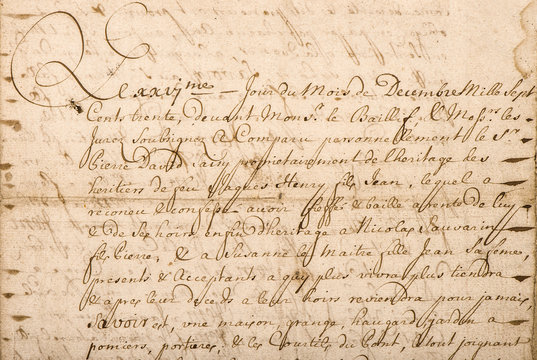 Le xxvj.me Jour du Mois de Decembre Mille Sept
Cents trente, devant Mons.r le Baillif, & Mess.rs les
Jurez Soubsignez A Comparu personnellement le S.r
Pierre David proprietairement de l'heritage des
heritiers de feu Jaques Henry fils Jean, lequel a
reconeu & confessé avoir fieffé & baillé a rente de luy
& de ses hoirs enfin d'heritage a Nicolas Sauvarin
fils Pierre, & a Susanne le Maitre fille Jean sa femes,
presents & Acceptants a quy plus vivra plus tiendra
& apres leur deceds a leur hoirs reviendra pour jamais,
Savoir est, une maison, grange, haugard, jardin a
pomiers, portieres, & les Courtils du Pont, & tout joignant